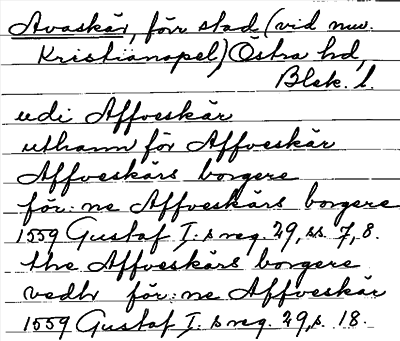 Avaskär, förr stad (vid nuv.
Kristianopel) Östra hd,
Blek. l.
udi Affveskär
uthann för Affveskär
Affveskärs borgere
för:ne Affveskärs borgere
1559 Gustaf I:s reg. 29, ss. 7, 8.
the Affveskärs borgere
vedh för:ne Affveskär
1559 Gustaf I:s reg. 29, s. 18.